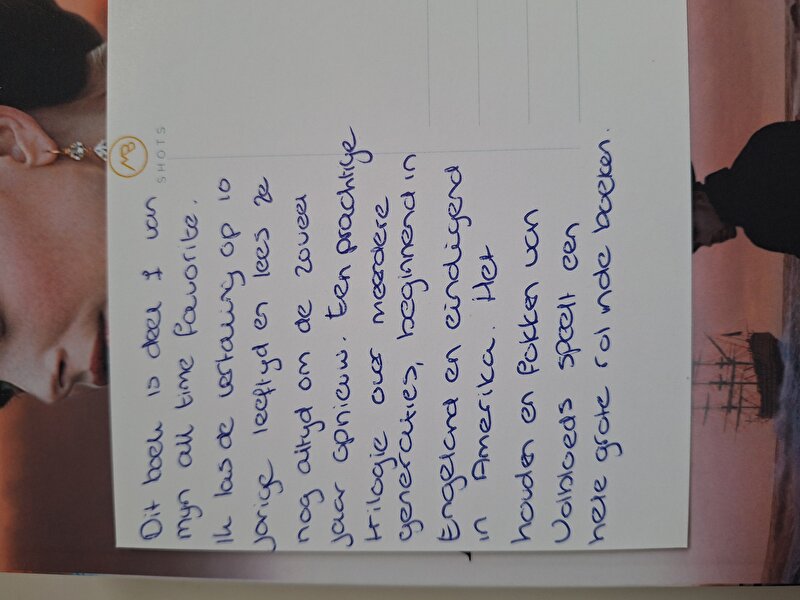 SHOTS
Dit boek is deel 1 van
mijn all time favorite.
Ik las de vertaling op 10
jarige leeftijd en lees ze
nog altijd om de zoveel
jaar opnieuw. Een prachtige
trilogie over meerdere
generaties, beginnend in
Engeland en eindigend
in Amerika. Het
houden en fokken van
Volbloeds speelt een
hele grote rol in de boeken.